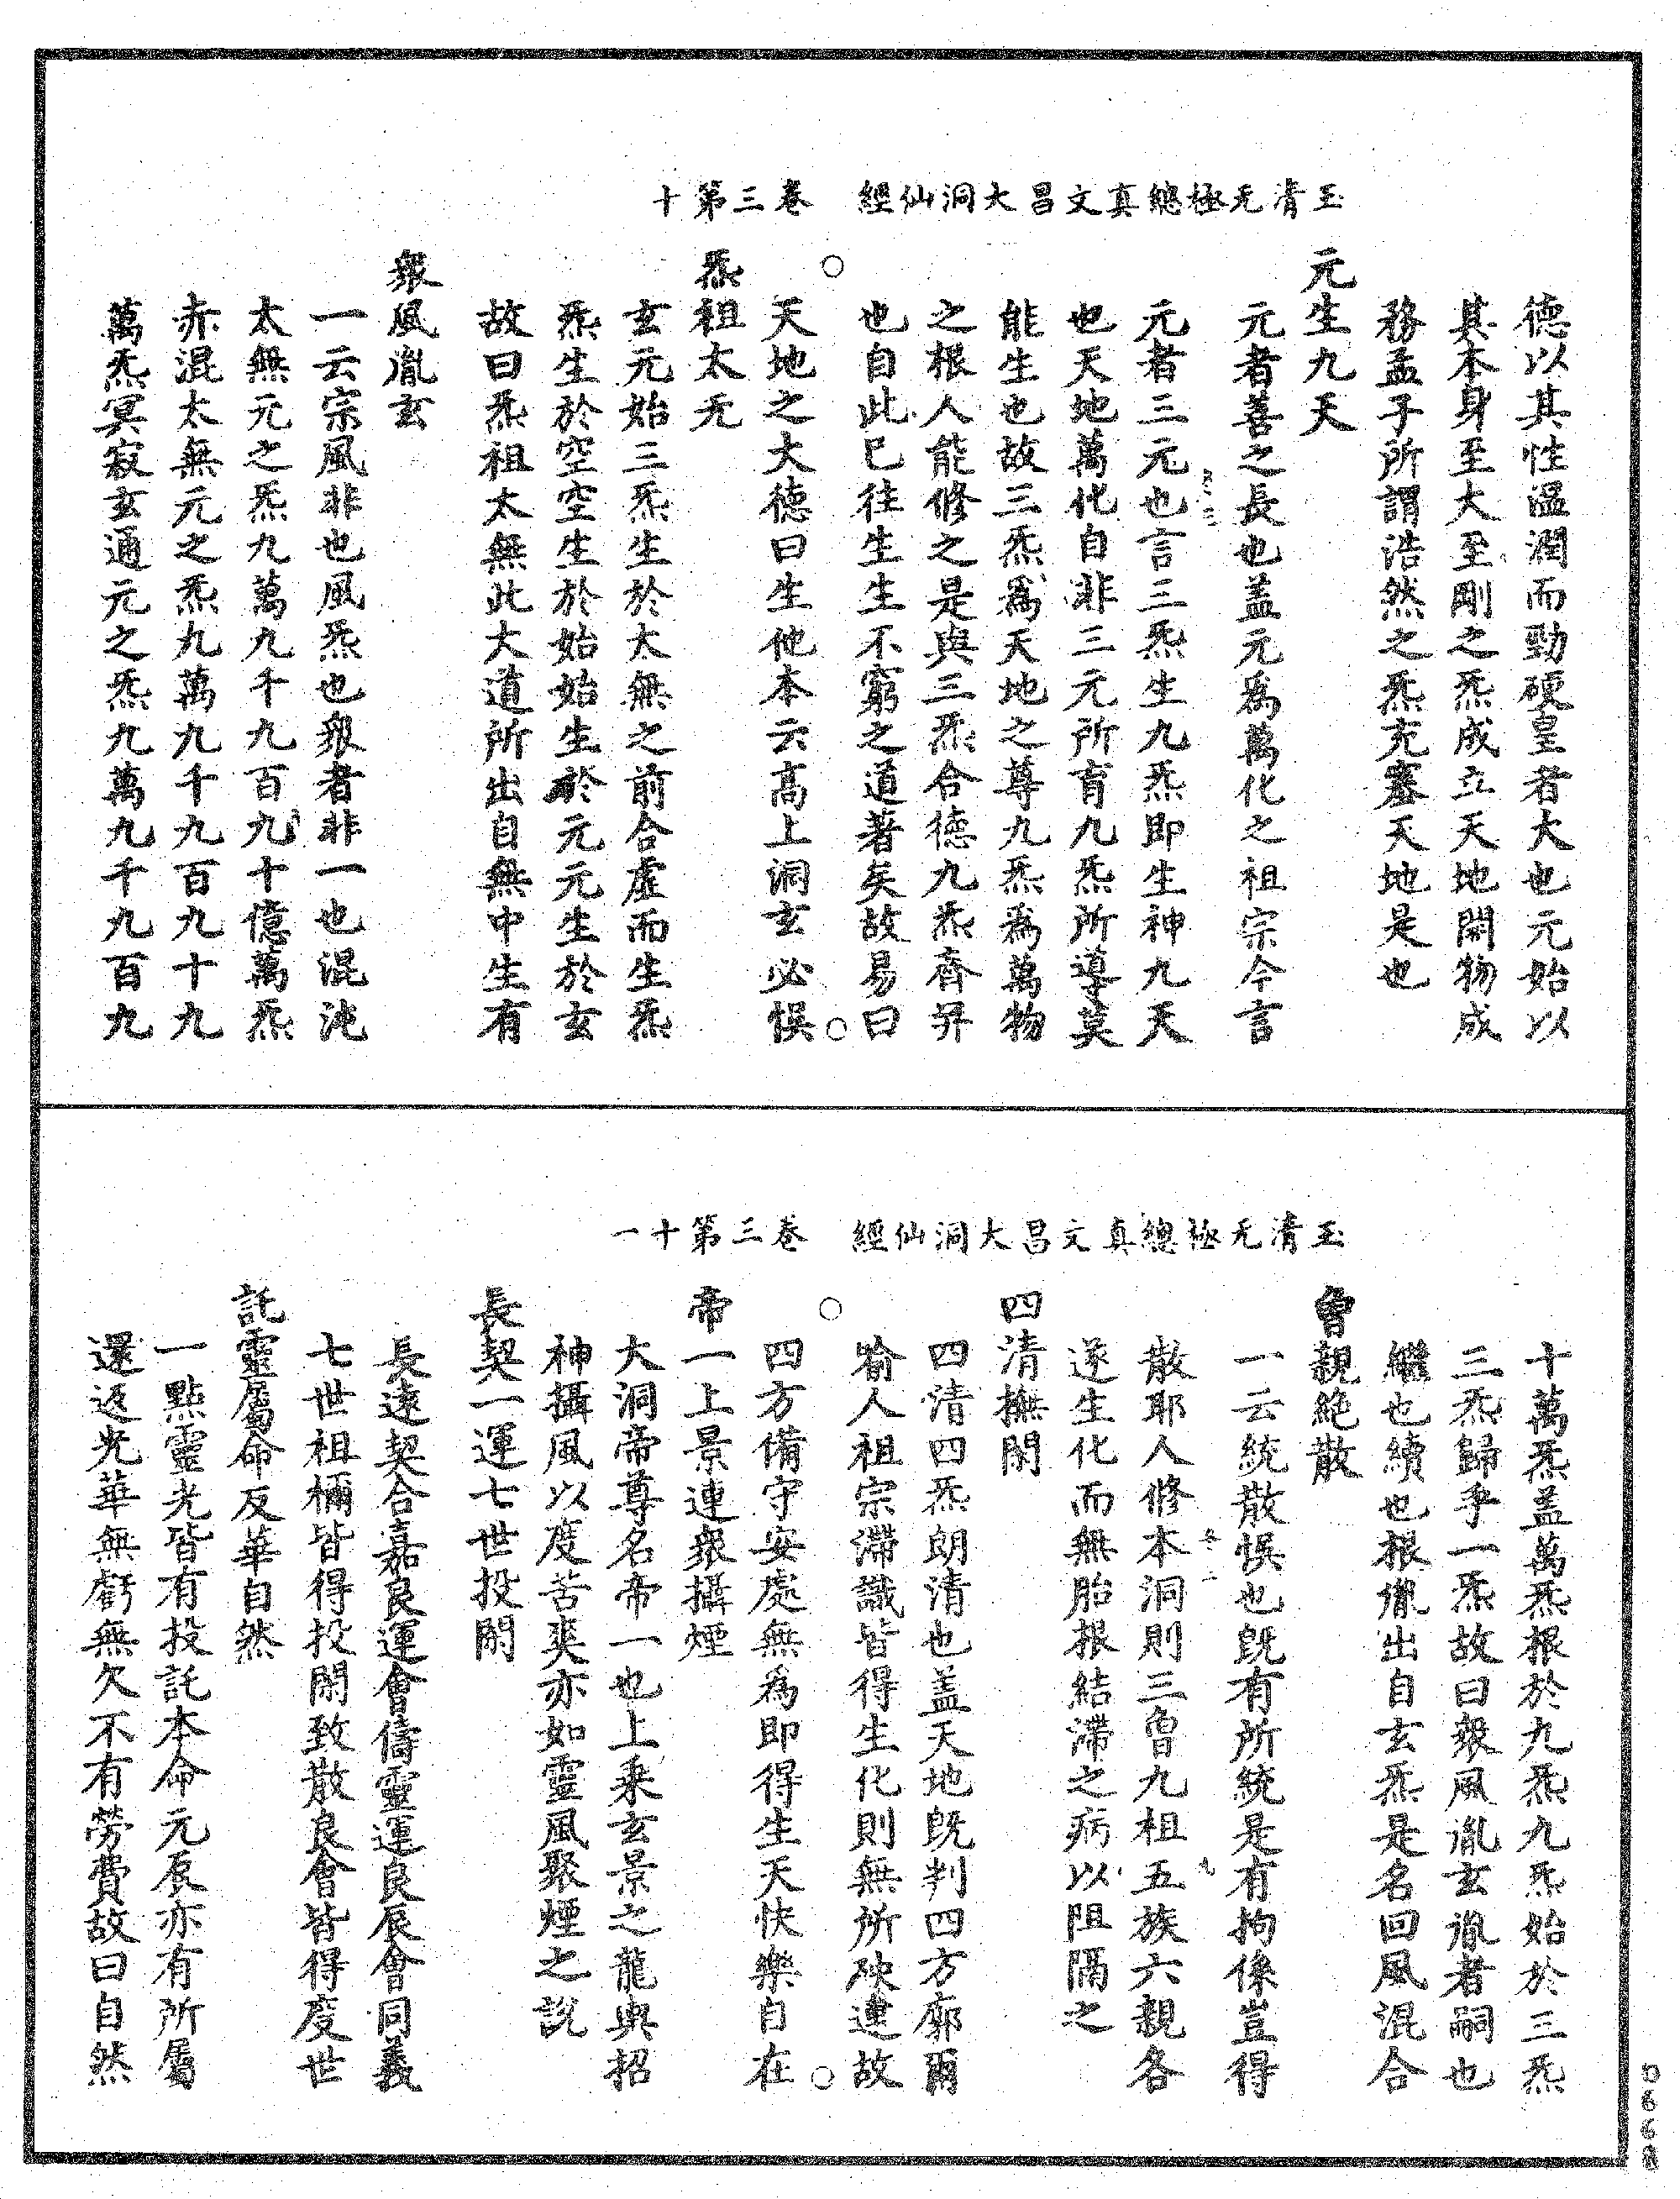 玉清无極總真文昌大洞仙經　卷三第十
德以其性溫潤而勁硬皇者大也元始以
其本身至大至剛之炁成立天地開物成
務孟子所謂浩然之炁充塞天地是也
元生九天
元者善之長也盖元爲萬化之祖宗今言
元者三元也言三炁生九炁即生神九天
也天地萬化自非三元所育九炁所導莫
能生也故三炁爲天地之尊九炁爲萬物
之根人能修之是與三炁合德九炁齊昇
也自此已往生生不窮之道著矣故易曰
天地之大德曰生他本云高上洞玄必悮
炁祖太无
玄元始三炁生於太無之前合虛而生炁
炁生於空空生於始始生於元元生於玄
故曰炁祖太無此大道所出自無中生有
衆風胤玄
一云宗風非也風炁也衆者非一也混沌
太無元之炁九萬九千九百九十億萬炁
赤混太無元之炁九萬九千九百九十九
萬炁冥寂玄通元之炁九萬九千九百九
玉清无極總真文昌大洞仙經　卷三第十一
十萬炁盖萬炁根於九炁九炁始於三炁
三炁歸乎一炁故曰衆風胤玄胤者嗣也
繼也續也根胤出自玄炁是名回風混合
曾親絶散
一云統散悮也旣有所統是有拘係豈得
散耶人修本洞則三曾九祖五族六親各
遂生化而無胎根結滯之病以阻隔之
四清撫閑
四清四炁朗清也盖天地旣判四方廓爾
喻人祖宗滯識皆得生化則無所殃逮故
四方備守安處無爲即得生天快樂自在
帝一上景連衆攝煙
大洞帝尊名帝一也上乘玄景之龍輿招
神攝風以度苦爽亦如靈風聚煙之說
長契一運七世投閑
長遠契合嘉良運會儔靈運良辰會同義
七世祖禰皆得投閑致散良會皆得度世
託靈屬命反華自然
一點靈光皆有投託本命元辰亦有所屬
還返光華無虧無欠不有勞費故曰自然